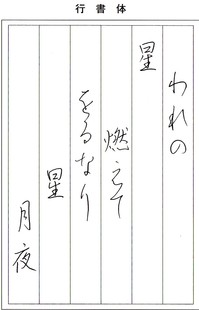 行書体
われの
星
燃えて
をるなり
星
月夜